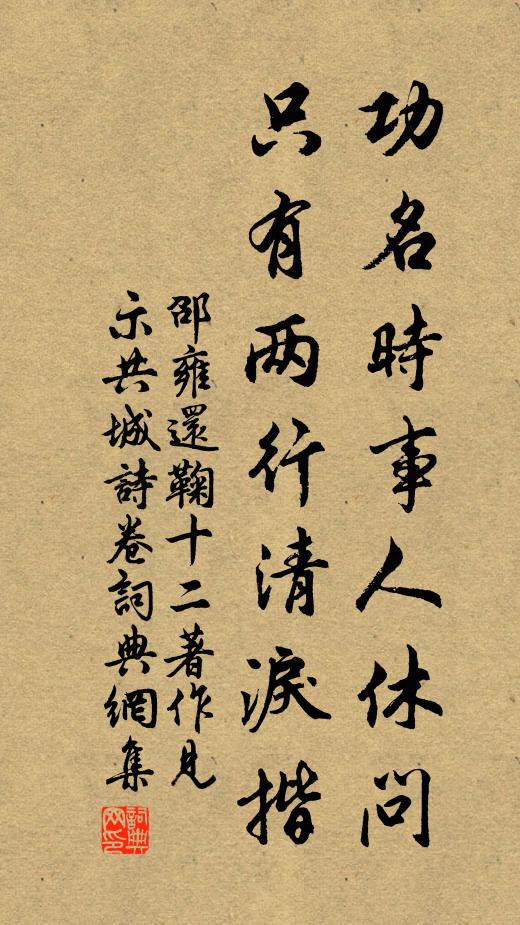 功名時事人休問
只有两行清淚揩
邵雍還鞠十二著作見
示共城詩卷詞典網集
詞典网印